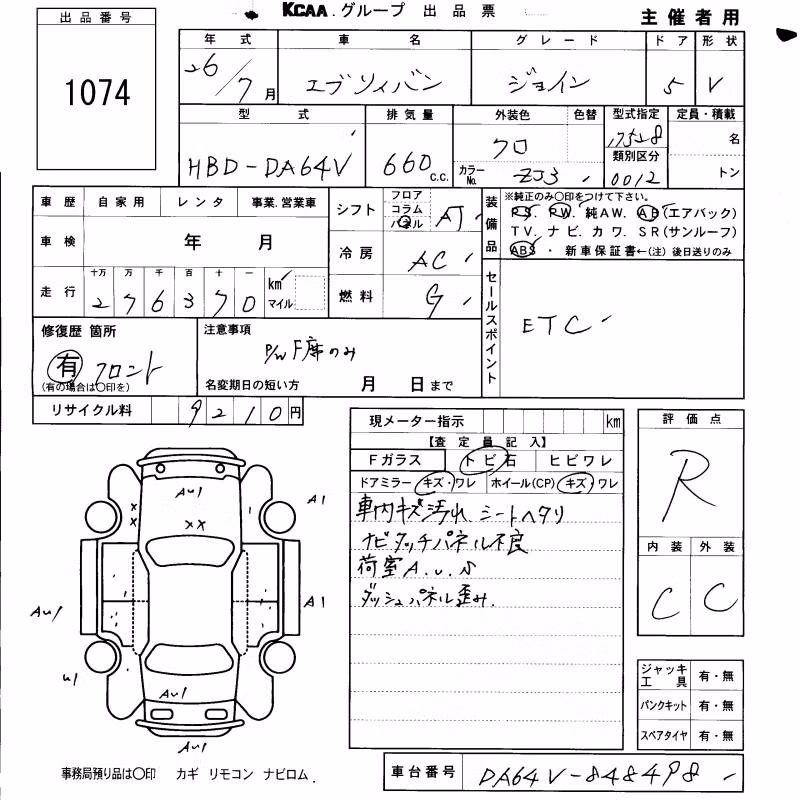 KCAA.グループ 出品票
主催者用
出品番号
1074
年式 車名 グレード ドア 形状
26/7月 エブリィバン ジョイン 5 V
型式 排気量 外装色 色替 型式指定 定員・積載
HBD-DA64V 660 C.C. クロ カラーNo. ZJ3 17528 名
類別区分
0012 トン
車歴 自家用 レンタ 事業.営業車
シフト フロア コラム パネル AT
装備品 ※純正のみ〇印をつけて下さい。
PS. PW. 純AW. AB(エアバック)
TV. ナビ. カワ. SR(サンルーフ)
ABS ・ 新車保証書←(注)後日送りのみ
車検 年 月
冷房 AC
走行 十万 万 千 百 十 一 km マイル
276370
燃料 G
セールスポイント
ETC
修復歴 箇所
有 フロント
(有の場合は〇印を)
注意事項
P/W F席のみ
名変期日の短い方 月 日まで
リサイクル料 9210円
現メーター指示 km
【査定員記入】
Fガラス トビ石 ヒビワレ
ドアミラー キズ・ワレ ホイール(CP) キズ・ワレ
車内キズ汚れ シートヘタリ
ナビタッチパネル不良
荷室A.U.S
ダッシュパネル歪み.
評価点
R
内装 外装
C C
AU1
A1
XX
XX
AU1
A1
U1
AU1
AU1
ジャッキ工具 有・無
パンクキット 有・無
スペアタイヤ 有・無
事務局預り品は〇印 カギ リモコン ナビロム.
車台番号 DA64V-848498